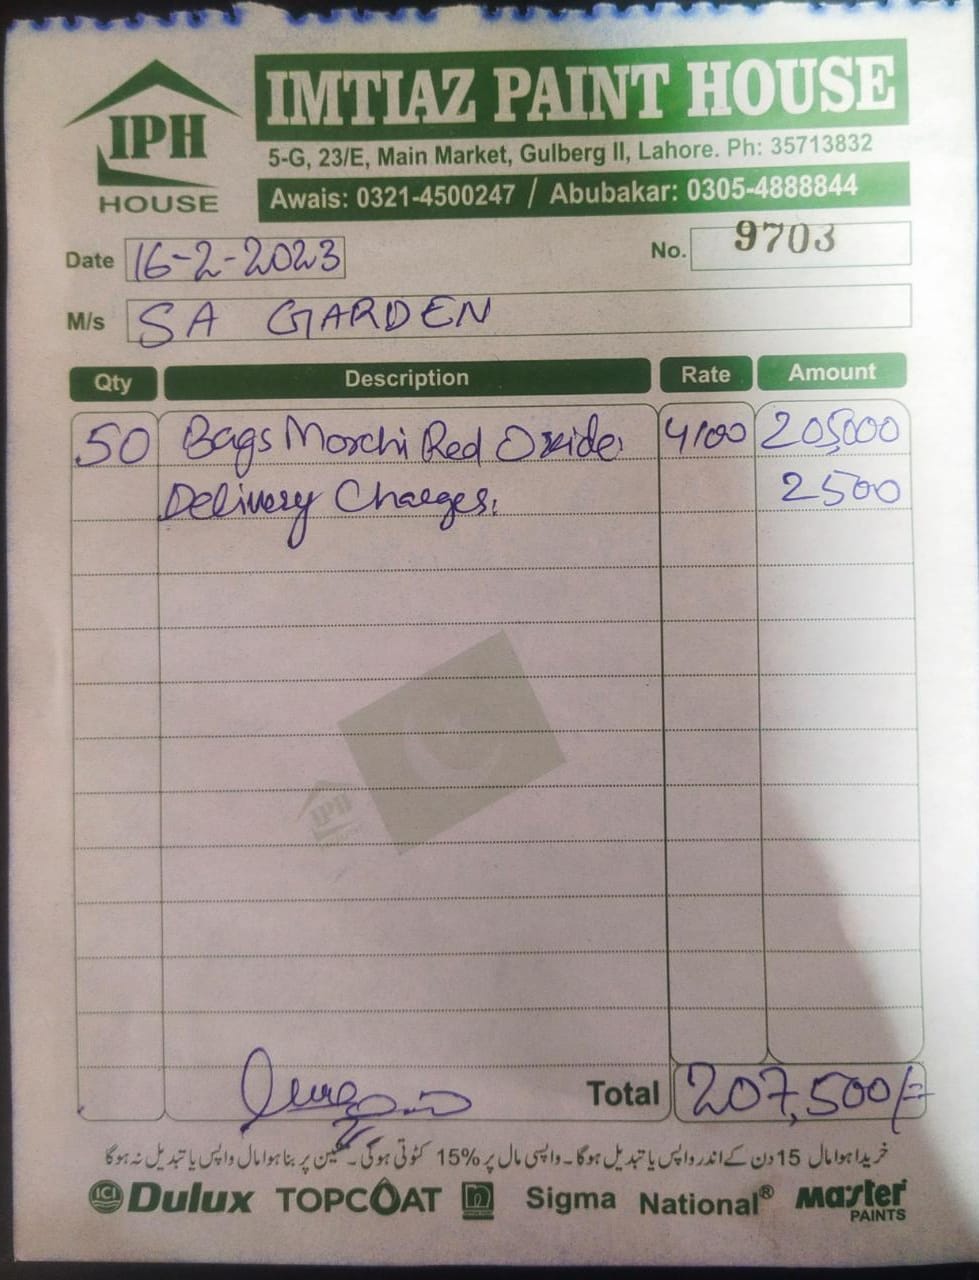 IPH
HOUSE
IMTIAZ PAINT HOUSE
5-G, 23/E, Main Market, Gulberg II, Lahore. Ph: 35713832
Awais: 0321-4500247 / Abubakar: 0305-4888844
Date 16-2-2023
No. 9703
M/s SA GARDEN
Qty Description Rate Amount
50 Bags Morchi Red Oxide. 4100 205,000
Delivery Charges. 2500
IPH
Total 207,500/=
خریدا ہوا مال 15 دن کے اندر واپس یا تبدیل ہوگا۔ واپسی مال پر %15 کٹوتی ہوگی۔ مشین پر بنا ہوا مال واپس یا تبدیل نہ ہوگا
ICI Dulux TOPCOAT Sigma National® Master PAINTS